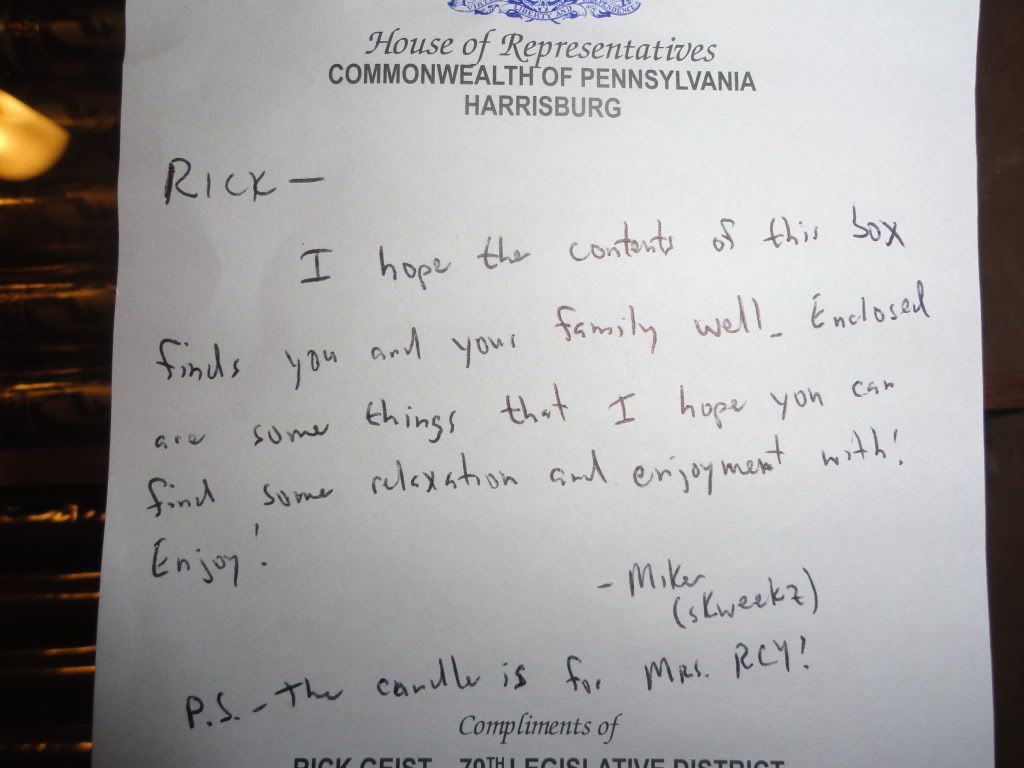 House of Representatives
COMMONWEALTH OF PENNSYLVANIA
HARRISBURG
RICK —
I hope the contents of this box
finds you and your family well. Enclosed
are some things that I hope you can
find some relaxation and enjoyment with!
Enjoy!
- Mike
(skweekz)
P.S. - The candle is for Mrs. RCY!
Compliments of
RICK GEIST 79TH LEGISLATIVE DISTRICT